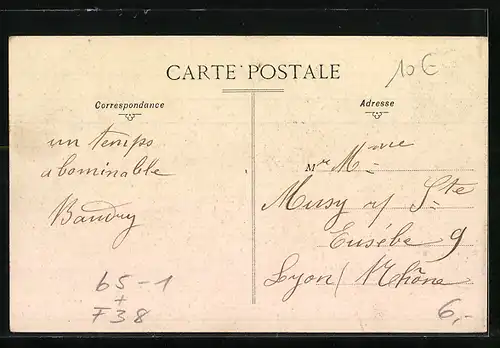 CARTE POSTALE
10€
Correspondance
Adresse
un temps
abominable
Baudry
Mr Mme
Musy r/ Ste
Eusèbe 9
Lyon / Rhône
65-1
+
F38
6,-